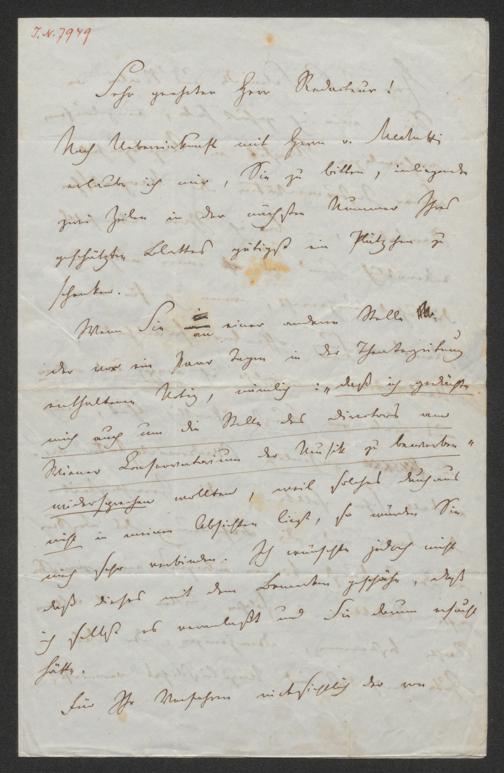 I.N. 7949
Sehr geehrter Herr Redacteur!
Nach Uebereinkunft mit Herrn v.
erlaube ich mir, Sie zu bitten, inliegende
zwei Zeilen in der nächsten Nummer Ihres
geschätzten Blattes gütigst ein Plätzchen zu
schenken.
Wenn Sie an einer anderen Stelle
der vor ein Paar Tagen in der Theaterzeitung
enthaltenen Notiz, nämlich: „daß ich gedächte
mich auch um die Stelle des Directors am
Wiener Conservatorium der Musik zu bewerben"
widersprechen wollten, weil solches durchaus
nicht in meinen Absichten liegt, so würden Sie
mich sehr verbinden. Ich wünschte jedoch nicht
daß dieses mit dem Bemerken geschähe, daß
ich selbst es veranlaßt und Sie darum ersucht
hätte.
Für Ihr Verfahren rücksichtlich der